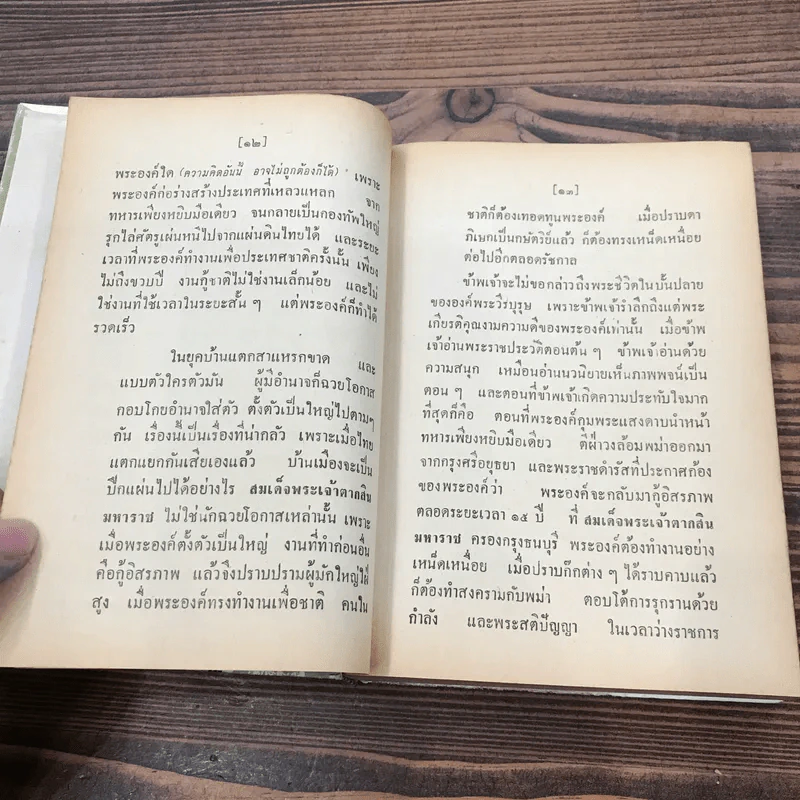 [๑๒]
พระองค์ใด (ความคิดอันนี้ อาจไม่ถูกต้องก็ได้) เพราะ
พระองค์ก่อร่างสร้างประเทศที่เหลวแหลก จาก
ทหารเพียงหยิบมือเดียว จนกลายเป็นกองทัพใหญ่
รุกไล่ศัตรูเผ่นหนีไปจากแผ่นดินไทยได้ และระยะ
เวลาที่พระองค์ทำงานเพื่อประเทศชาติครั้งนั้น เพียง
ไม่ถึงขวบปี งานกู้ชาติไม่ใช่งานเล็กน้อย และไม่
ใช่งานที่ใช้เวลาในระยะสั้น ๆ แต่พระองค์ก็ทำได้
รวดเร็ว
ในยุคบ้านแตกสาแหรกขาด และ
แบบตัวใครตัวมัน ผู้มีอำนาจก็ฉวยโอกาส
กอบโกยอำนาจใส่ตัว ตั้งตัวเป็นใหญ่ไปตามๆ
กัน เรื่องนี้เป็นเรื่องที่น่ากลัว เพราะเมื่อไทย
แตกแยกกันเสียเองแล้ว บ้านเมืองจะเป็น
ปึกแผ่นไปได้อย่างไร สมเด็จพระเจ้าตากสิน
มหาราช ไม่ใช่นักฉวยโอกาสเหล่านั้น เพราะ
เมื่อพระองค์ตั้งตัวเป็นใหญ่ งานที่ทำก่อนอื่น
คือกู้อิสรภาพ แล้วจึงปราบปรามผู้มักใหญ่ใฝ่
สูง เมื่อพระองค์ทรงทำงานเพื่อชาติ คนใน
[๑๓]
ชาติก็ต้องเทอดทูนพระองค์ เมื่อปราบดา
ภิเษกเป็นกษัตริย์แล้ว ก็ต้องทรงเหน็ดเหนื่อย
ต่อไปอีกตลอดรัชกาล
ข้าพเจ้าจะไม่ขอกล่าวถึงพระชีวิตในบั้นปลาย
ขององค์พระวีรบุรุษ เพราะข้าพเจ้ารำลึกถึงแต่พระ
เกียรติคุณงามความดีของพระองค์เท่านั้น เมื่อข้าพ
เจ้าอ่านพระราชประวัติตอนต้น ๆ ข้าพเจ้าอ่านด้วย
ความสนุก เหมือนอ่านนวนิยายเห็นภาพพจน์เป็น
ตอน ๆ และตอนที่ข้าพเจ้าเกิดความประทับใจมาก
ที่สุดก็คือ ตอนที่พระองค์กุมพระแสงดาบนำหน้า
ทหารเพียงหยิบมือเดียว ตีฝ่าวงล้อมพม่าออกมา
จากกรุงศรีอยุธยา และพระราชดำรัสที่ประกาศก้อง
ของพระองค์ว่า พระองค์จะกลับมากู้อิสรภาพ
ตลอดระยะเวลา ๑๕ ปี ที่ สมเด็จพระเจ้าตากสิน
มหาราช ครองกรุงธนบุรี พระองค์ต้องทำงานอย่าง
เหน็ดเหนื่อย เมื่อปราบก๊กต่าง ๆ ได้ราบคาบแล้ว
ก็ต้องทำสงครามกับพม่า ตอบโต้การรุกรานด้วย
กำลัง และพระสติปัญญา ในเวลาว่างราชการ